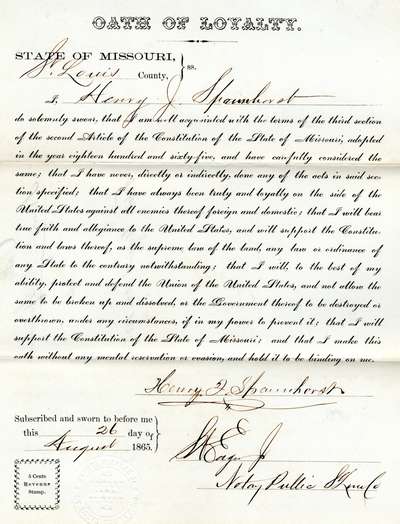 OATH OF LOYALTY.
STATE OF MISSOURI,
St. Louis County, } ss.
I, Henry J. Spaunhorst
do solemnly swear, that I am well acquainted with the terms of the third section
of the second Article of the Constitution of the State of Missouri, adopted
in the year eighteen hundred and sixty-five, and have carefully considered the
same; that I have never, directly or indirectly, done any of the acts in said sec-
tion specified; that I have always been truly and loyally on the side of the
United States against all enemies thereof foreign and domestic; that I will bear
true faith and allegiance to the United States, and will support the Constitu-
tion and laws thereof, as the supreme law of the land, any law or ordinance of
any State to the contrary notwithstanding; that I will, to the best of my
ability, protect and defend the Union of the United States, and not allow the
same to be broken up and dissolved, or the Government thereof to be destroyed or
overthrown, under any circumstances, if in my power to prevent it; that I will
support the Constitution of the State of Missouri; and that I make this
oath without any mental reservation or evasion, and hold it to be binding on me.
Henry J. Spaunhorst
Subscribed and sworn to before me
this 26 day of
August 1865.
Notary Public
5 Cents
Revenue
Stamp.